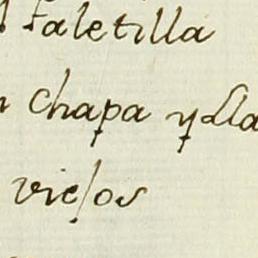 faletilla
chapa y lla
viejos